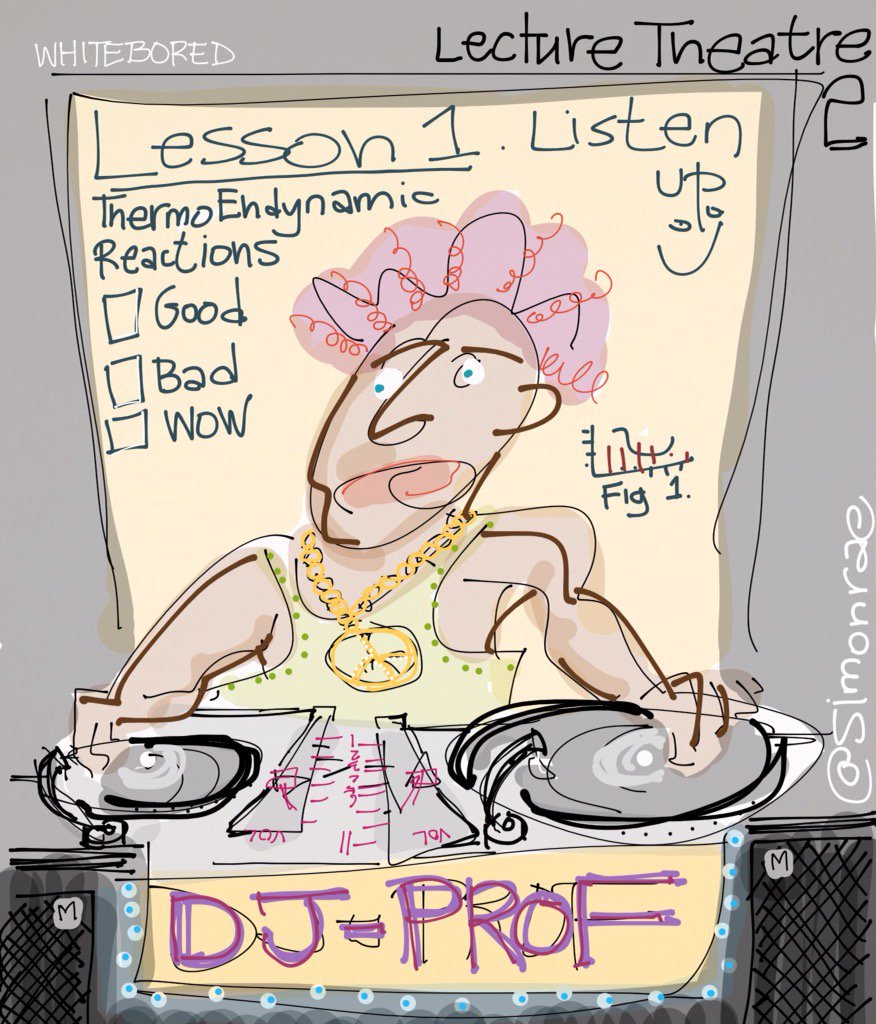 WHITEBORED
Lecture Theatre
2
Lesson 1. Listen
up
ThermoEndynamic
Reactions
Good
Bad
WOW
Fig 1.
@Simonrae
VOL
VOL
11
M
M
DJ=PROF